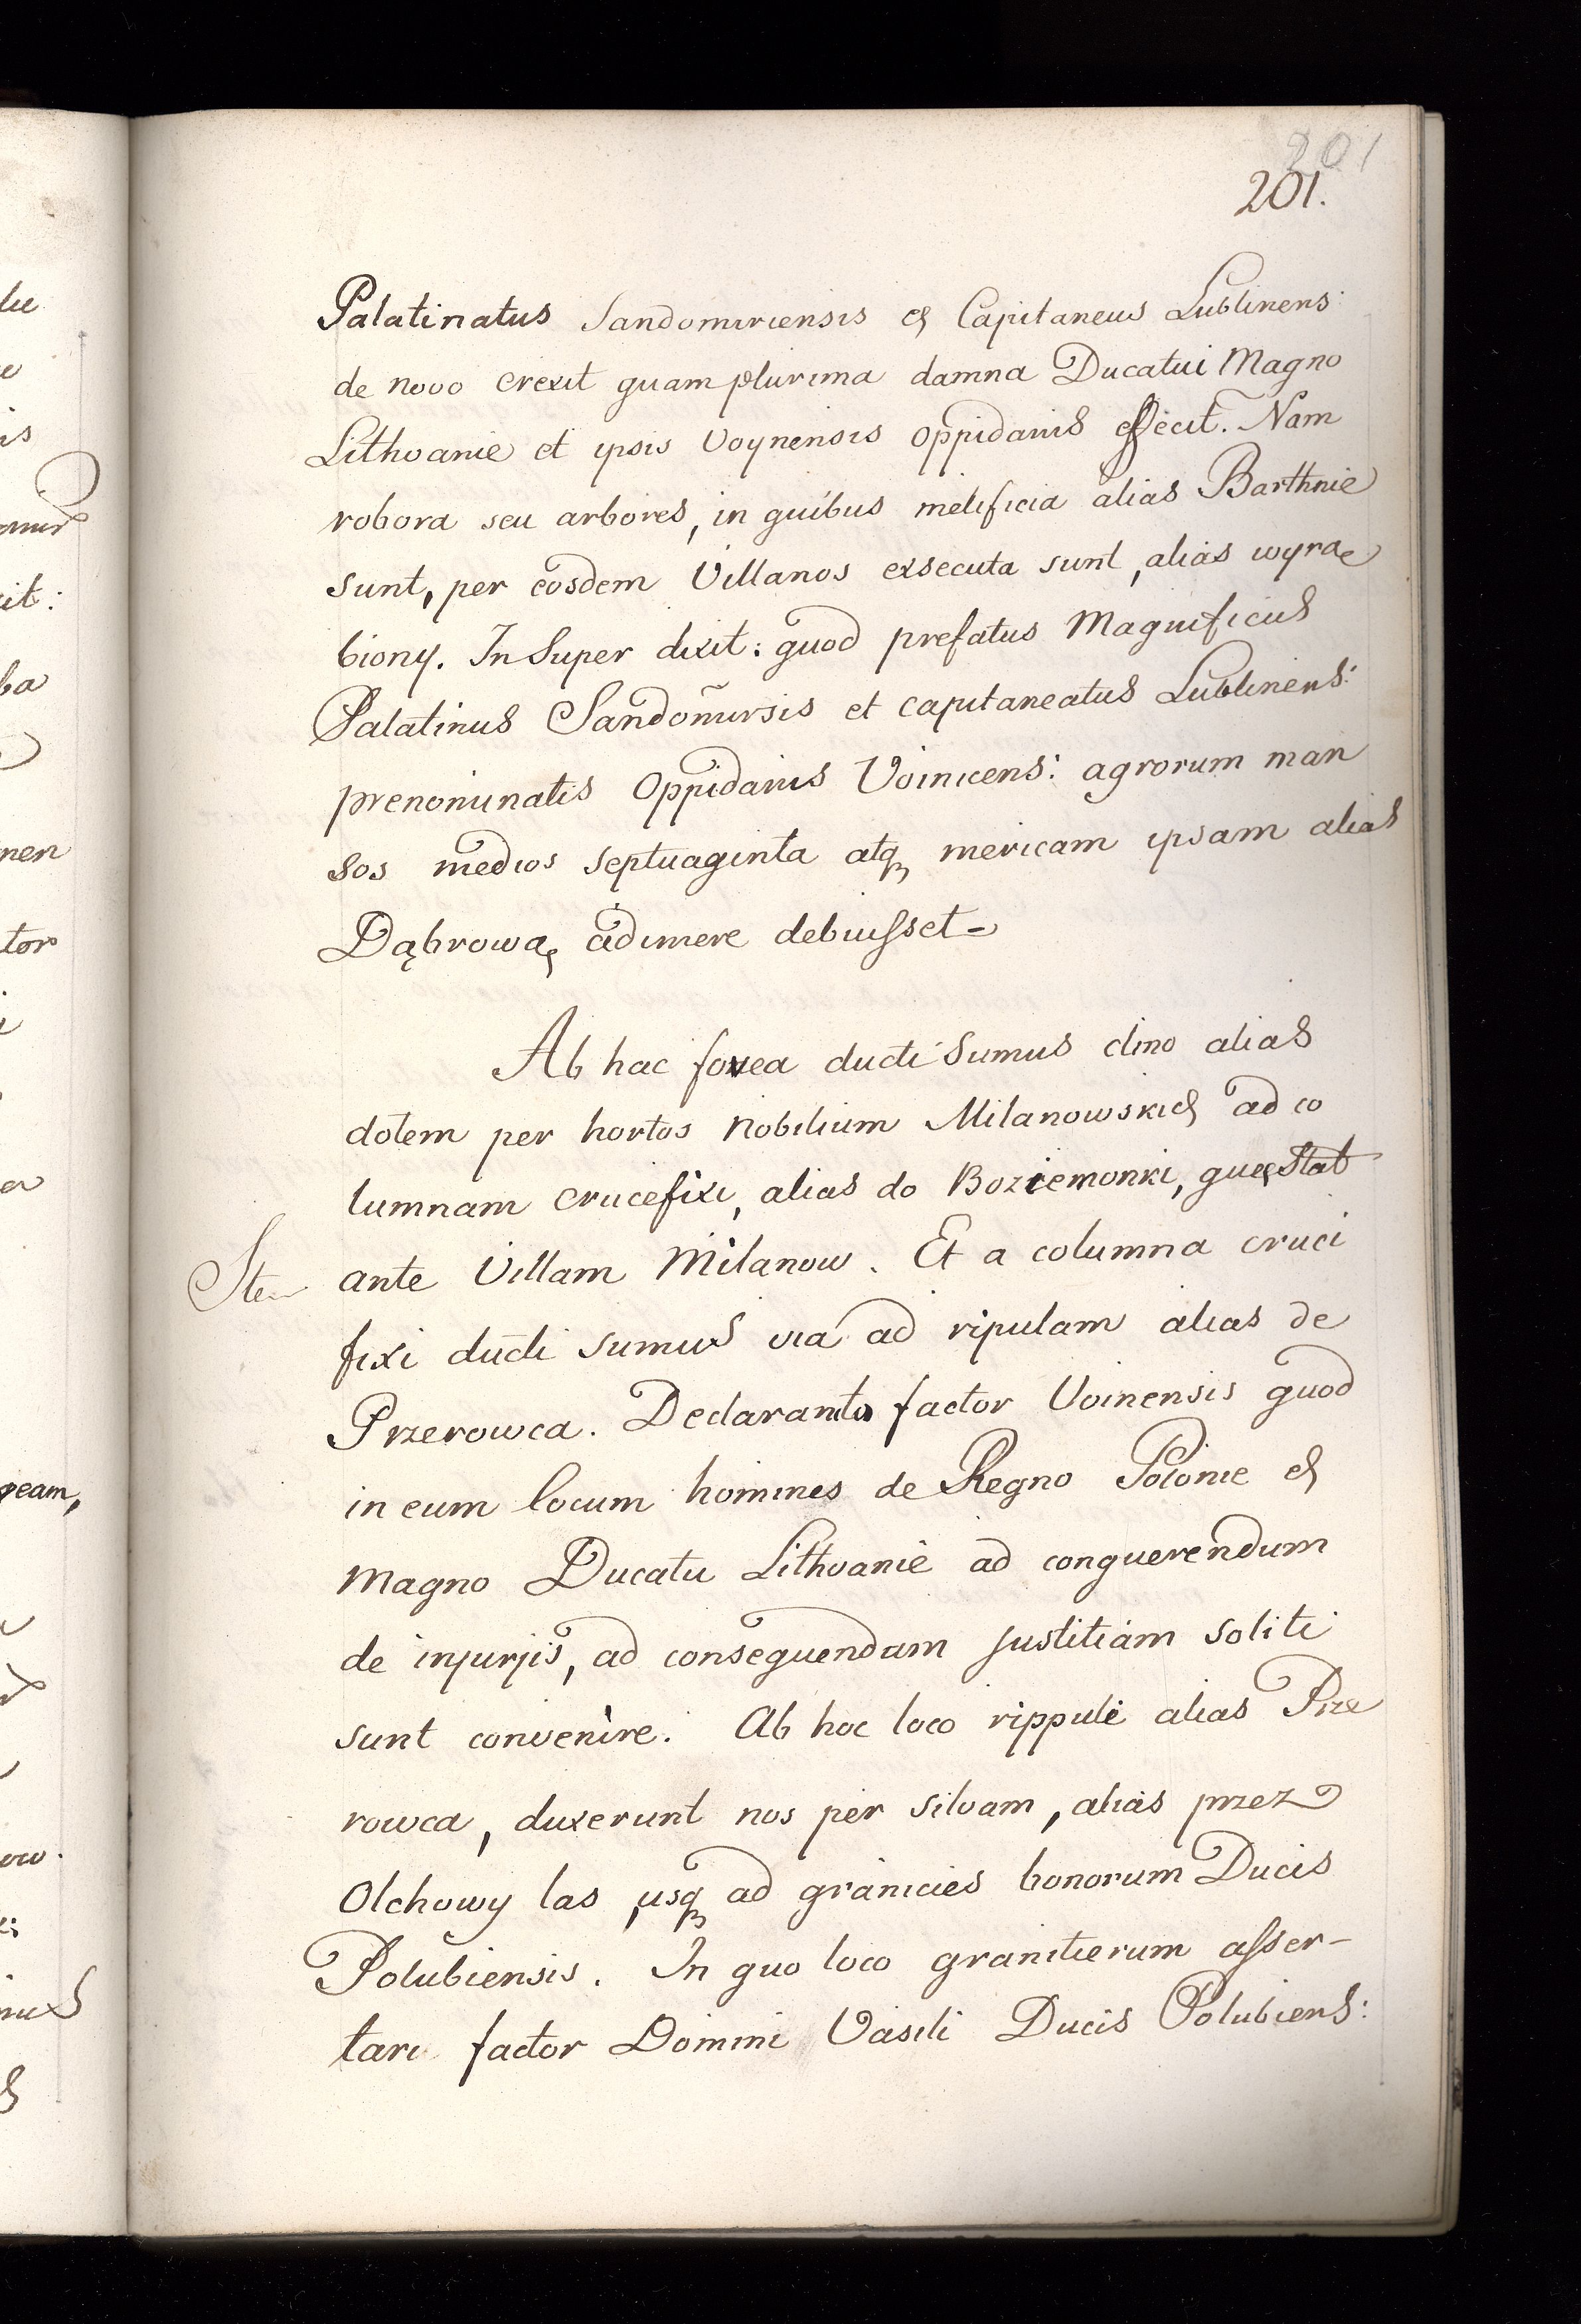 201
201.
Palatinatus Sandomiriensis et Capitaneus Lublinens:
de novo erexit quam plurima damna Ducatui Magno
Lithvanie et ipsis Voynensis oppidanis effecit. Nam
robora seu arbores, in quibus melificia alias Barthnie
sunt, per eosdem Villanos exsecuta sunt, alias wyrae
biony. In Super dixit: quod prefatus Magnificus
Palatinus Sandomirsis et capitaneatus Lublinens:
prenominatis oppidanis Voinicens: agrorum man
sos medios septuaginta atq mericam ipsam alias
Dąbrowa, adimere debuisset-
Ab hac fovea ducti sumus clino alias
dotem per hortos Nobilium Milanowskich ad co
lumnam crucefixi, alias do Boziemonki, quae stat
Ite ante Villam Milanow. Et a columna cruci
fixi ducti sumus via ad ripulam alias de
Przerowca. Declarante factor Voinensis quod
in eum locum homines de Regno Polonie et
Magno Ducatu Lithvanie ad conquerendum
de injurjis, ad consequendam justitiam soliti
sunt convenire. Ab hoc loco rippule alias Prze
rowca, duxerunt nos per silvam, alias przez
Olchowy las, usq ad granicies bonorum Ducis
Polubiensis. In quo loco granitierum asser-
tari factor Domini Vasili Ducis Polubiens: